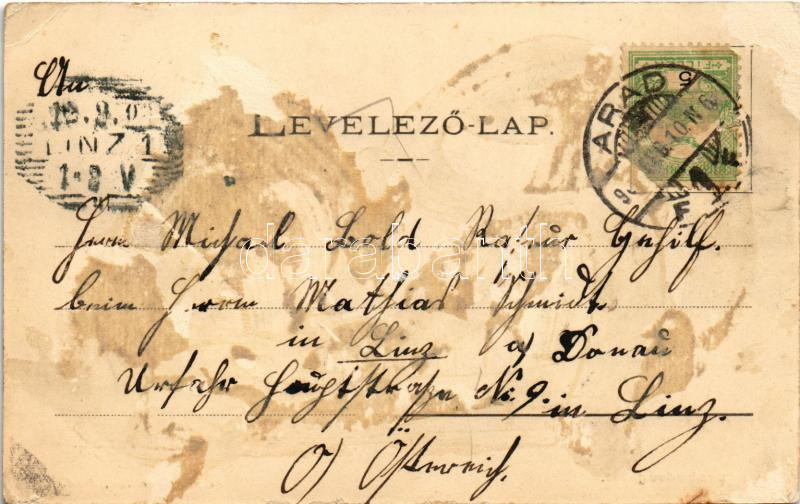 An
LINZ 1
1-8 V
LEVELEZŐ-LAP.
ARAD
Herrn Michael Bold Rasur Gehilf.
beim Herrn Mathias Schmidt
in Linz a/ Donau
Urfahr Hauptstraße No. 9. in Linz.
O/ Österreich.
darabanth